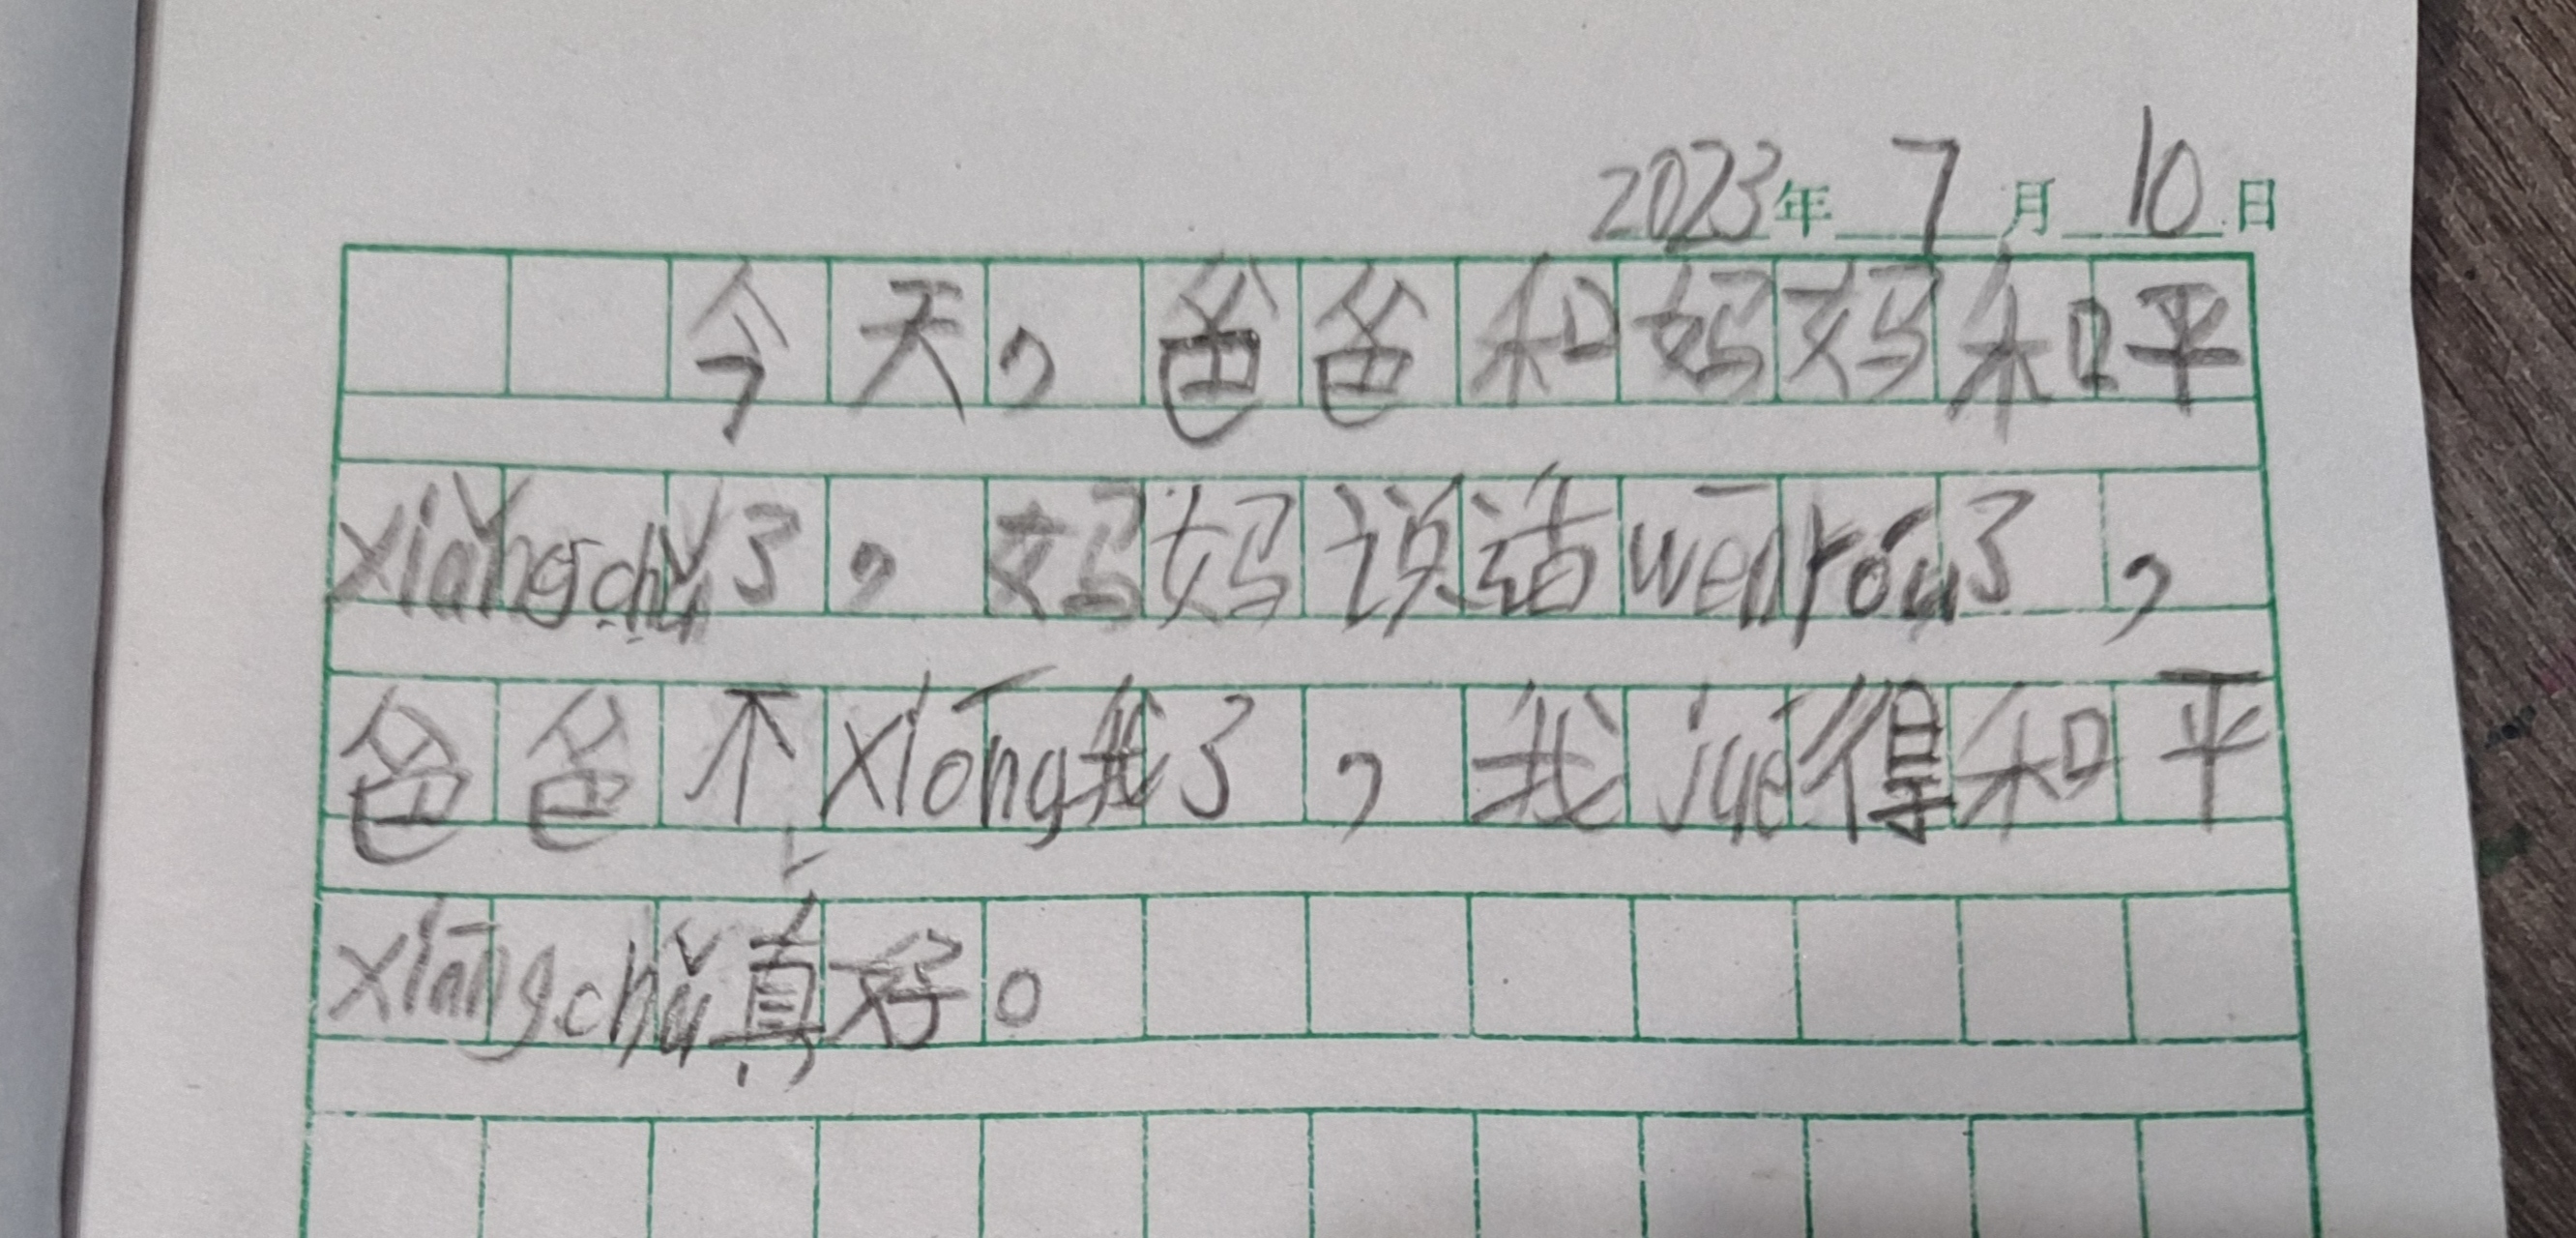 2023年7月10日
今天，爸爸和妈妈和平
xiǎngchǔ了，妈妈说话wēnróu了，
爸爸不xiōng我了，我jué得和平
xiāngchǔ真好。